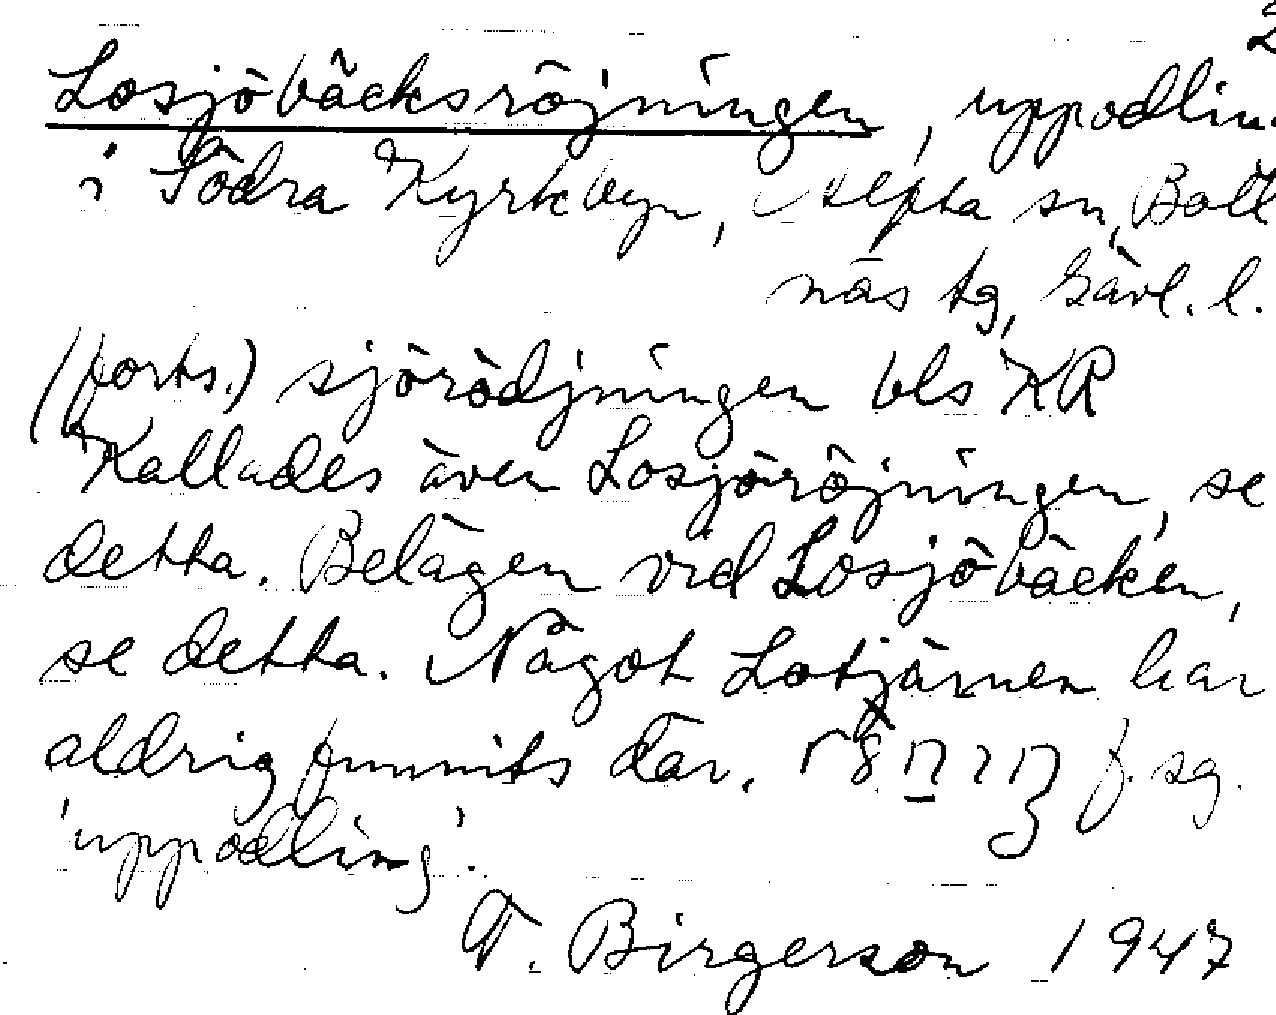 2
Losjöbäcksröjningen, uppodlin
i Södra Kyrkbyn, Alfta sn, Boll
näs tg, Gävl. l.
(forts.) sjörödjningen bls KR
Kallades även Losjöröjningen, se
detta. Belägen vid Losjöbäcken,
se detta. Något Lotjärnen har
aldrig funnits där. f. sg.
'uppodling'.
T. Birgerson 1947